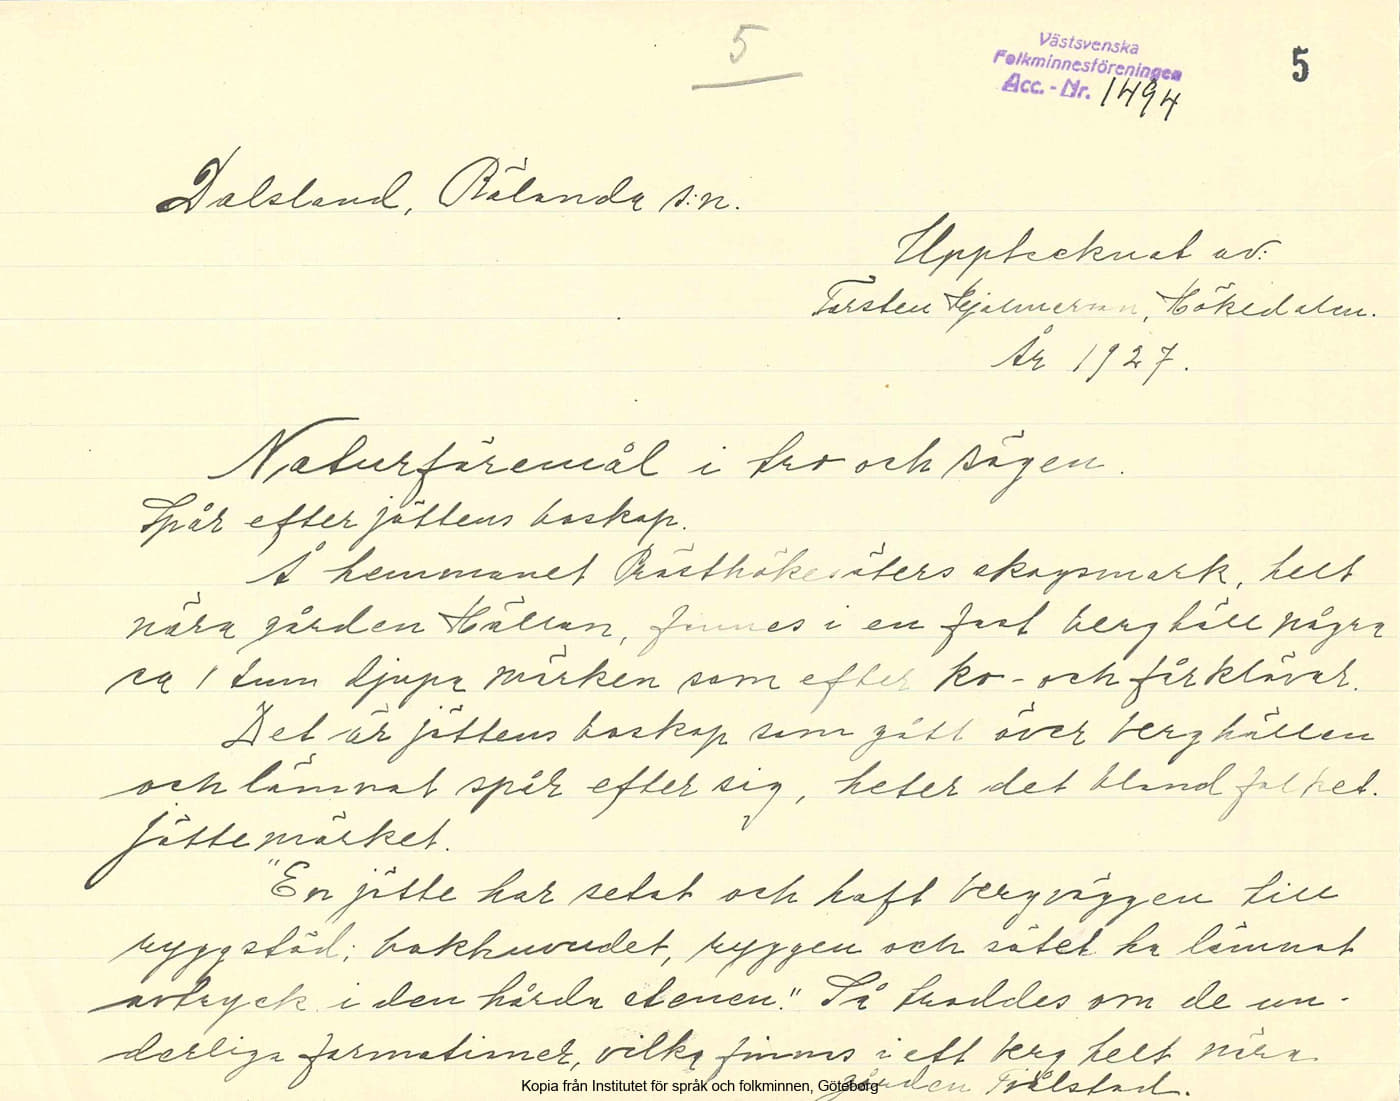 5
Västsvenska
Folkminnesföreningen
Acc.-Nr. 1494
5
Dalsland, Bälanda s:n.
Upptecknat av:
Torsten Hjalmerson, Hökedalen.
År 1927.
Naturföremål i tro och sägen.
Spår efter jättens boskap.
Å hemmanet Prästhökesäters skogsmark, helt
nära gården Hällan, finnes i en fast berghäll några
ca 1 tum djupa märken som efter ko- och fårklövar.
Det är jättens boskap som gått över berghällen
och lämnat spår efter sig, heter det bland folket.
Jättemärket.
"En jätte har setat och haft bergväggen till
ryggstöd; bakhuvudet, ryggen och sätet ha lämnat
avtryck i den hårda stenen." Så troddes om de un-
derliga formationer, vilka finns i ett berg helt nära
gården
Kopia från Institutet för språk och folkminnen, Göteborg